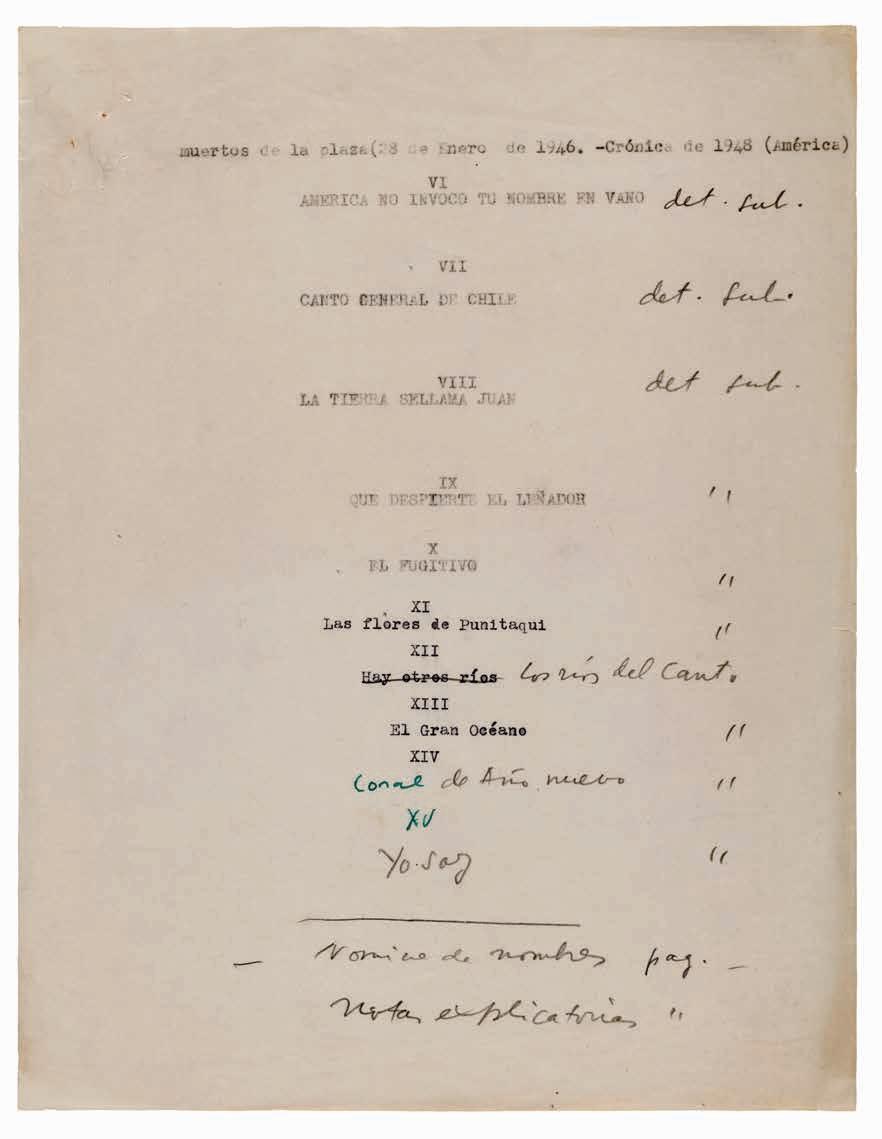 muertos de la plaza(28 de Enero de 1946. -Crónica de 1948 (América)
VI
AMERICA NO INVOCO TU NOMBRE EN VANO det. sub.
VII
CANTO GENERAL DE CHILE det. sub.
VIII
LA TIERRA SELLAMA JUAN det sub.
IX
QUE DESPIERTE EL LEÑADOR "
X
EL FUGITIVO "
XI
Las flores de Punitaqui "
XII
Hay otros ríos Los ríos del Canto
XIII
El Gran Océano "
XIV
Coral de Año nuevo "
XV
Yo soy "
— de nombres pag. —
Notas explicatorias "